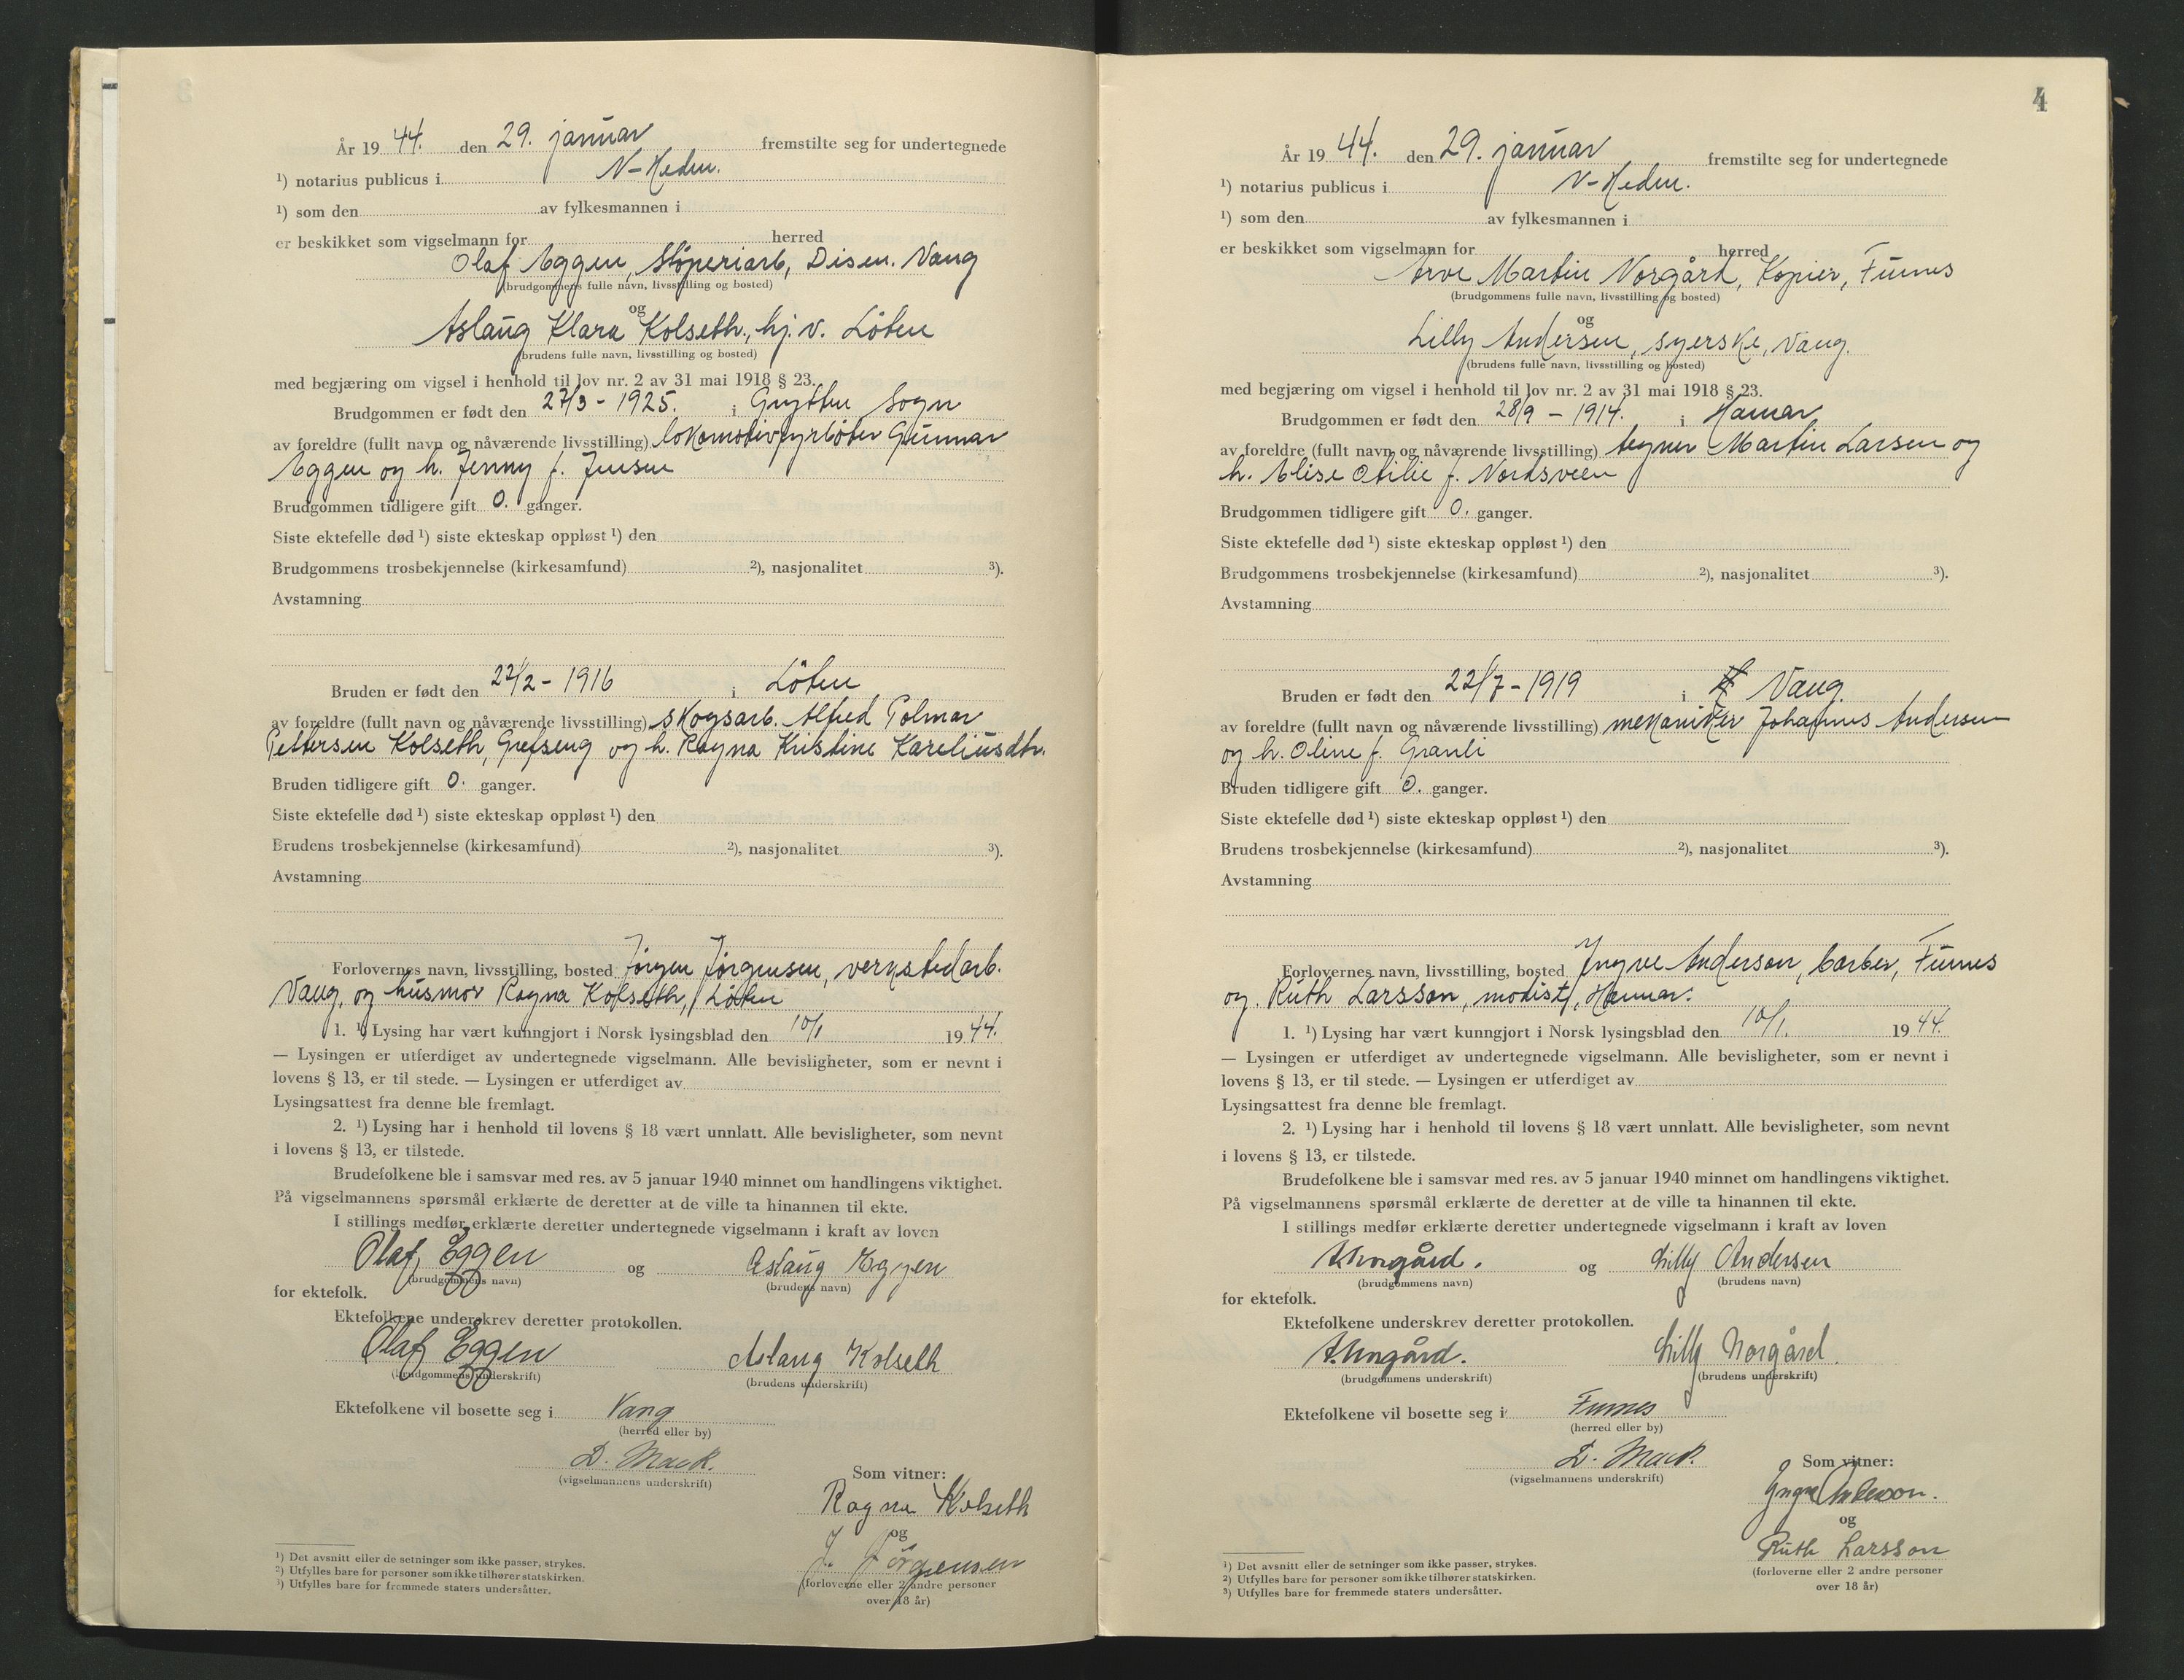 År 19 44. den 29. januar fremstilte seg for undertegnede
¹) notarius publicus i N-Hedm.
¹) som den av fylkesmannen i
er beskikket som vigselmann for herred
Olaf Eggen, Støperiarb, Disen. Vang
(brudgommens fulle navn, livsstilling og bosted)
og
Aslaug Klara Kolseth., hj.v. Löten
(brudens fulle navn, livsstilling og bosted)
med begjæring om vigsel i henhold til lov nr. 2 av 31 mai 1918 § 23.
Brudgommen er født den 27/3 - 1925. i Grytten Sogn
av foreldre (fullt navn og nåværende livsstilling) lokomotivfyrböter Gunnar
Eggen og h. Jenny f. Jensen
Brudgommen tidligere gift 0. ganger.
Siste ektefelle død ¹) siste ekteskap oppløst ¹) den
Brudgommens trosbekjennelse (kirkesamfund) ²), nasjonalitet ³).
Avstamning
Bruden er født den 22/2 - 1916 i Löten
av foreldre (fullt navn og nåværende livsstilling) skogsarb. Alfred Polmar
Pettersen Kolseth, Grefseng og h. Ragna Kristine Kareliusdtr.
Bruden tidligere gift 0. ganger.
Siste ektefelle død ¹) siste ekteskap oppløst ¹) den
Brudens trosbekjennelse (kirkesamfund) ²), nasjonalitet ³).
Avstamning
Forlovernes navn, livsstilling, bosted Jörgen Jörgensen, verkstedarb.
Vang, og husmor Ragna Kolseth, Löten
1. ¹) Lysing har vært kunngjort i Norsk lysingsblad den 10/1 19 44.
— Lysingen er utferdiget av undertegnede vigselmann. Alle bevisligheter, som er nevnt i
lovens § 13, er til stede. — Lysingen er utferdiget av
Lysingsattest fra denne ble fremlagt.
2. ¹) Lysing har i henhold til lovens § 18 vært unnlatt. Alle bevisligheter, som nevnt
i lovens § 13, er tilstede.
Brudefolkene ble i samsvar med res. av 5 januar 1940 minnet om handlingens viktighet.
På vigselmannens spørsmål erklærte de deretter at de ville ta hinannen til ekte.
I stillings medfør erklærte deretter undertegnede vigselmann i kraft av loven
Olaf Eggen og Aslaug Eggen
(brudgommens navn) (brudens navn)
for ektefolk.
Ektefolkene underskrev deretter protokollen.
Olaf Eggen Aslaug Kolseth
(brudgommens underskrift) (brudens underskrift)
Ektefolkene vil bosette seg i Vang
(herred eller by)
D. Mack.
(vigselmannens underskrift)
Som vitner:
Ragna Kolseth
og
J. Jörgensen
(forloverne eller 2 andre personer
over 18 år)
¹) Det avsnitt eller de setninger som ikke passer, strykes.
²) Utfylles bare for personer som ikke tilhører statskirken.
³) Utfylles bare for fremmede staters undersåtter.
4
År 19 44. den 29. januar fremstilte seg for undertegnede
¹) notarius publicus i N-Hedm.
¹) som den av fylkesmannen i
er beskikket som vigselmann for herred
Arve Martin Norgård, Kopier, Furnes
(brudgommens fulle navn, livsstilling og bosted)
og
Lilly Andersen, syerske, Vang.
(brudens fulle navn, livsstilling og bosted)
med begjæring om vigsel i henhold til lov nr. 2 av 31 mai 1918 § 23.
Brudgommen er født den 28/9 - 1914. i Hamar
av foreldre (fullt navn og nåværende livsstilling) tegner Martin Larsen og
h. Elise Otilie f. Nordsveen
Brudgommen tidligere gift 0. ganger.
Siste ektefelle død ¹) siste ekteskap oppløst ¹) den
Brudgommens trosbekjennelse (kirkesamfund) ²), nasjonalitet ³).
Avstamning
Bruden er født den 22/7 - 1919 i Vang.
av foreldre (fullt navn og nåværende livsstilling) mekaniker Johannes Andersen
og h. Oline f. Granli
Bruden tidligere gift 0. ganger.
Siste ektefelle død ¹) siste ekteskap oppløst ¹) den
Brudens trosbekjennelse (kirkesamfund) ²), nasjonalitet ³).
Avstamning
Forlovernes navn, livsstilling, bosted Yngve Anderson, barber, Furnes
og Ruth Larsson, modist, Hamar.
1. ¹) Lysing har vært kunngjort i Norsk lysingsblad den 10/1. 19 44.
— Lysingen er utferdiget av undertegnede vigselmann. Alle bevisligheter, som er nevnt i
lovens § 13, er til stede. — Lysingen er utferdiget av
Lysingsattest fra denne ble fremlagt.
2. ¹) Lysing har i henhold til lovens § 18 vært unnlatt. Alle bevisligheter, som nevnt
i lovens § 13, er tilstede.
Brudefolkene ble i samsvar med res. av 5 januar 1940 minnet om handlingens viktighet.
På vigselmannens spørsmål erklærte de deretter at de ville ta hinannen til ekte.
I stillings medfør erklærte deretter undertegnede vigselmann i kraft av loven
A. Norgård. og Lilly Andersen
(brudgommens navn) (brudens navn)
for ektefolk.
Ektefolkene underskrev deretter protokollen.
A. Norgård. Lilly Norgård.
(brudgommens underskrift) (brudens underskrift)
Ektefolkene vil bosette seg i Furnes
(herred eller by)
D. Mack.
(vigselmannens underskrift)
Som vitner:
Yngve Anderson.
og
Ruth Larsson
(forloverne eller 2 andre personer
over 18 år)
¹) Det avsnitt eller de setninger som ikke passer, strykes.
²) Utfylles bare for personer som ikke tilhører statskirken.
³) Utfylles bare for fremmede staters undersåtter.